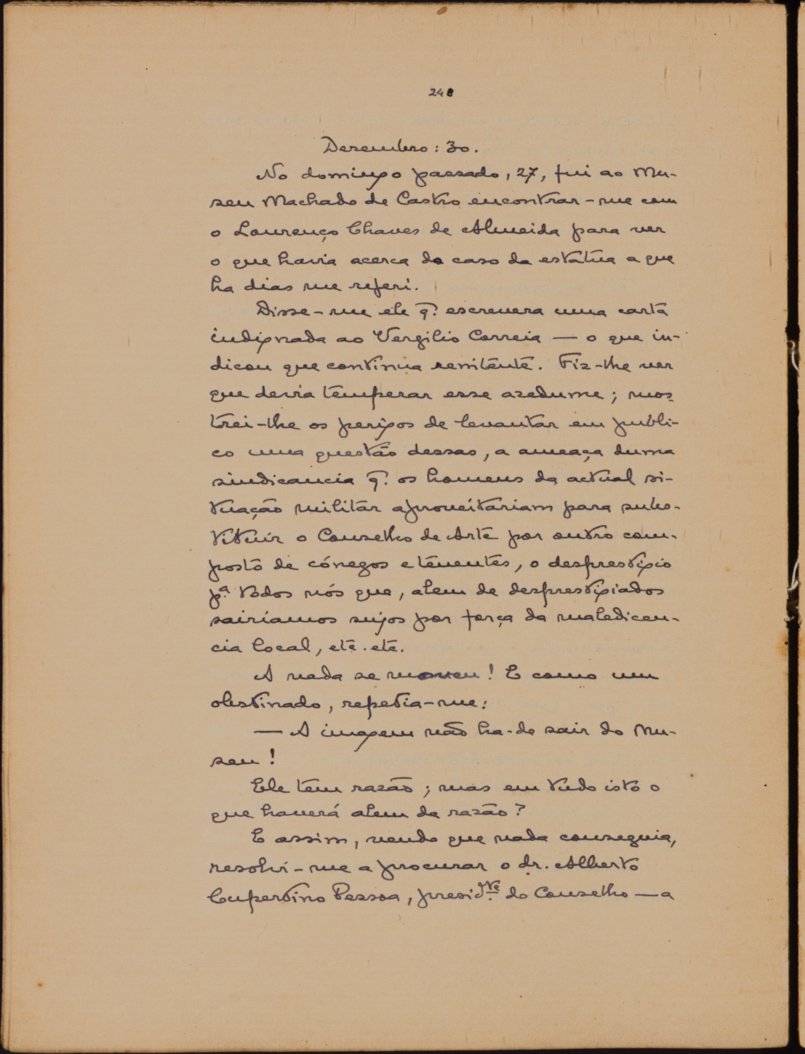 248
Dezembro: 30.
No domingo passado, 27, fui ao Mu-
seu Machado de Castro encontrar-me com
o Lourenço Chaves de Almeida para ver
o que havia acerca do caso da estátua a que
ha dias me referi.
Disse-me ele q̃. escrevera uma carta
indignada ao Vergilio Correia — o que in-
dicou que continua renitente. Fiz-lhe ver
que devia temperar esse azedume; mos-
trei-lhe os perigos de levantar em publi-
co uma questão dessas, a ameaça duma
sindicancia q̃. os homens da actual si-
tuação militar aproveitariam para subs-
tituir o Conselho de Arte por outro com-
posto de cónegos e tenentes, o desprestigio
pª. todos nós que, alem de desprestigiados
sairíamos sujos por força da maledicen-
cia local, etc. etc.
A nada se moveu! E como um
obstinado, repetia-me:
— A imagem não ha-de sair do Mu-
seu!
Ele tem razão; mas em tudo isto o
que haverá alem da razão?
E assim, vendo que nada conseguia,
resolvi-me a procurar o dr. Alberto
Cupertino Pessoa, presid.te do Conselho — a